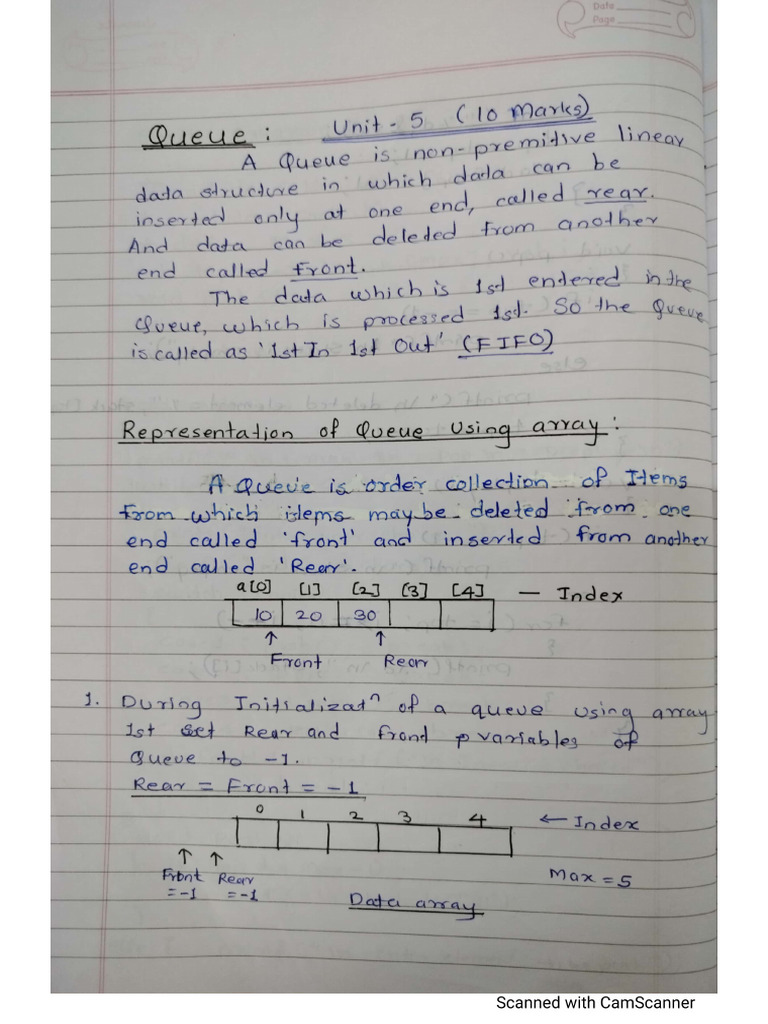 Date
Page
Queue : Unit - 5 (10 Marks)
A Queue is non-premitive linear
data structure in which data can be
inserted only at one end, called rear.
And data can be deleted from another
end called front.
The data which is 1st entered in the
Queue, which is processed 1st. So the Queue
is called as '1st In 1st Out' (FIFO)
Representation of Queue Using array :
A Queue is order collection of Items
from which items may be deleted from one
end called 'front' and inserted from another
end called 'Rear'.
a[0] [1] [2] [3] [4] — Index
10 20 30
↑ ↑
Front Rear
1. During Initializatⁿ of a queue using array
1st set Rear and frond p variables of
Queue to -1.
Rear = Front = -1
0 1 2 3 4 ← Index
↑ ↑
Front Rear Max = 5
= -1 = -1
Data array
Scanned with CamScanner